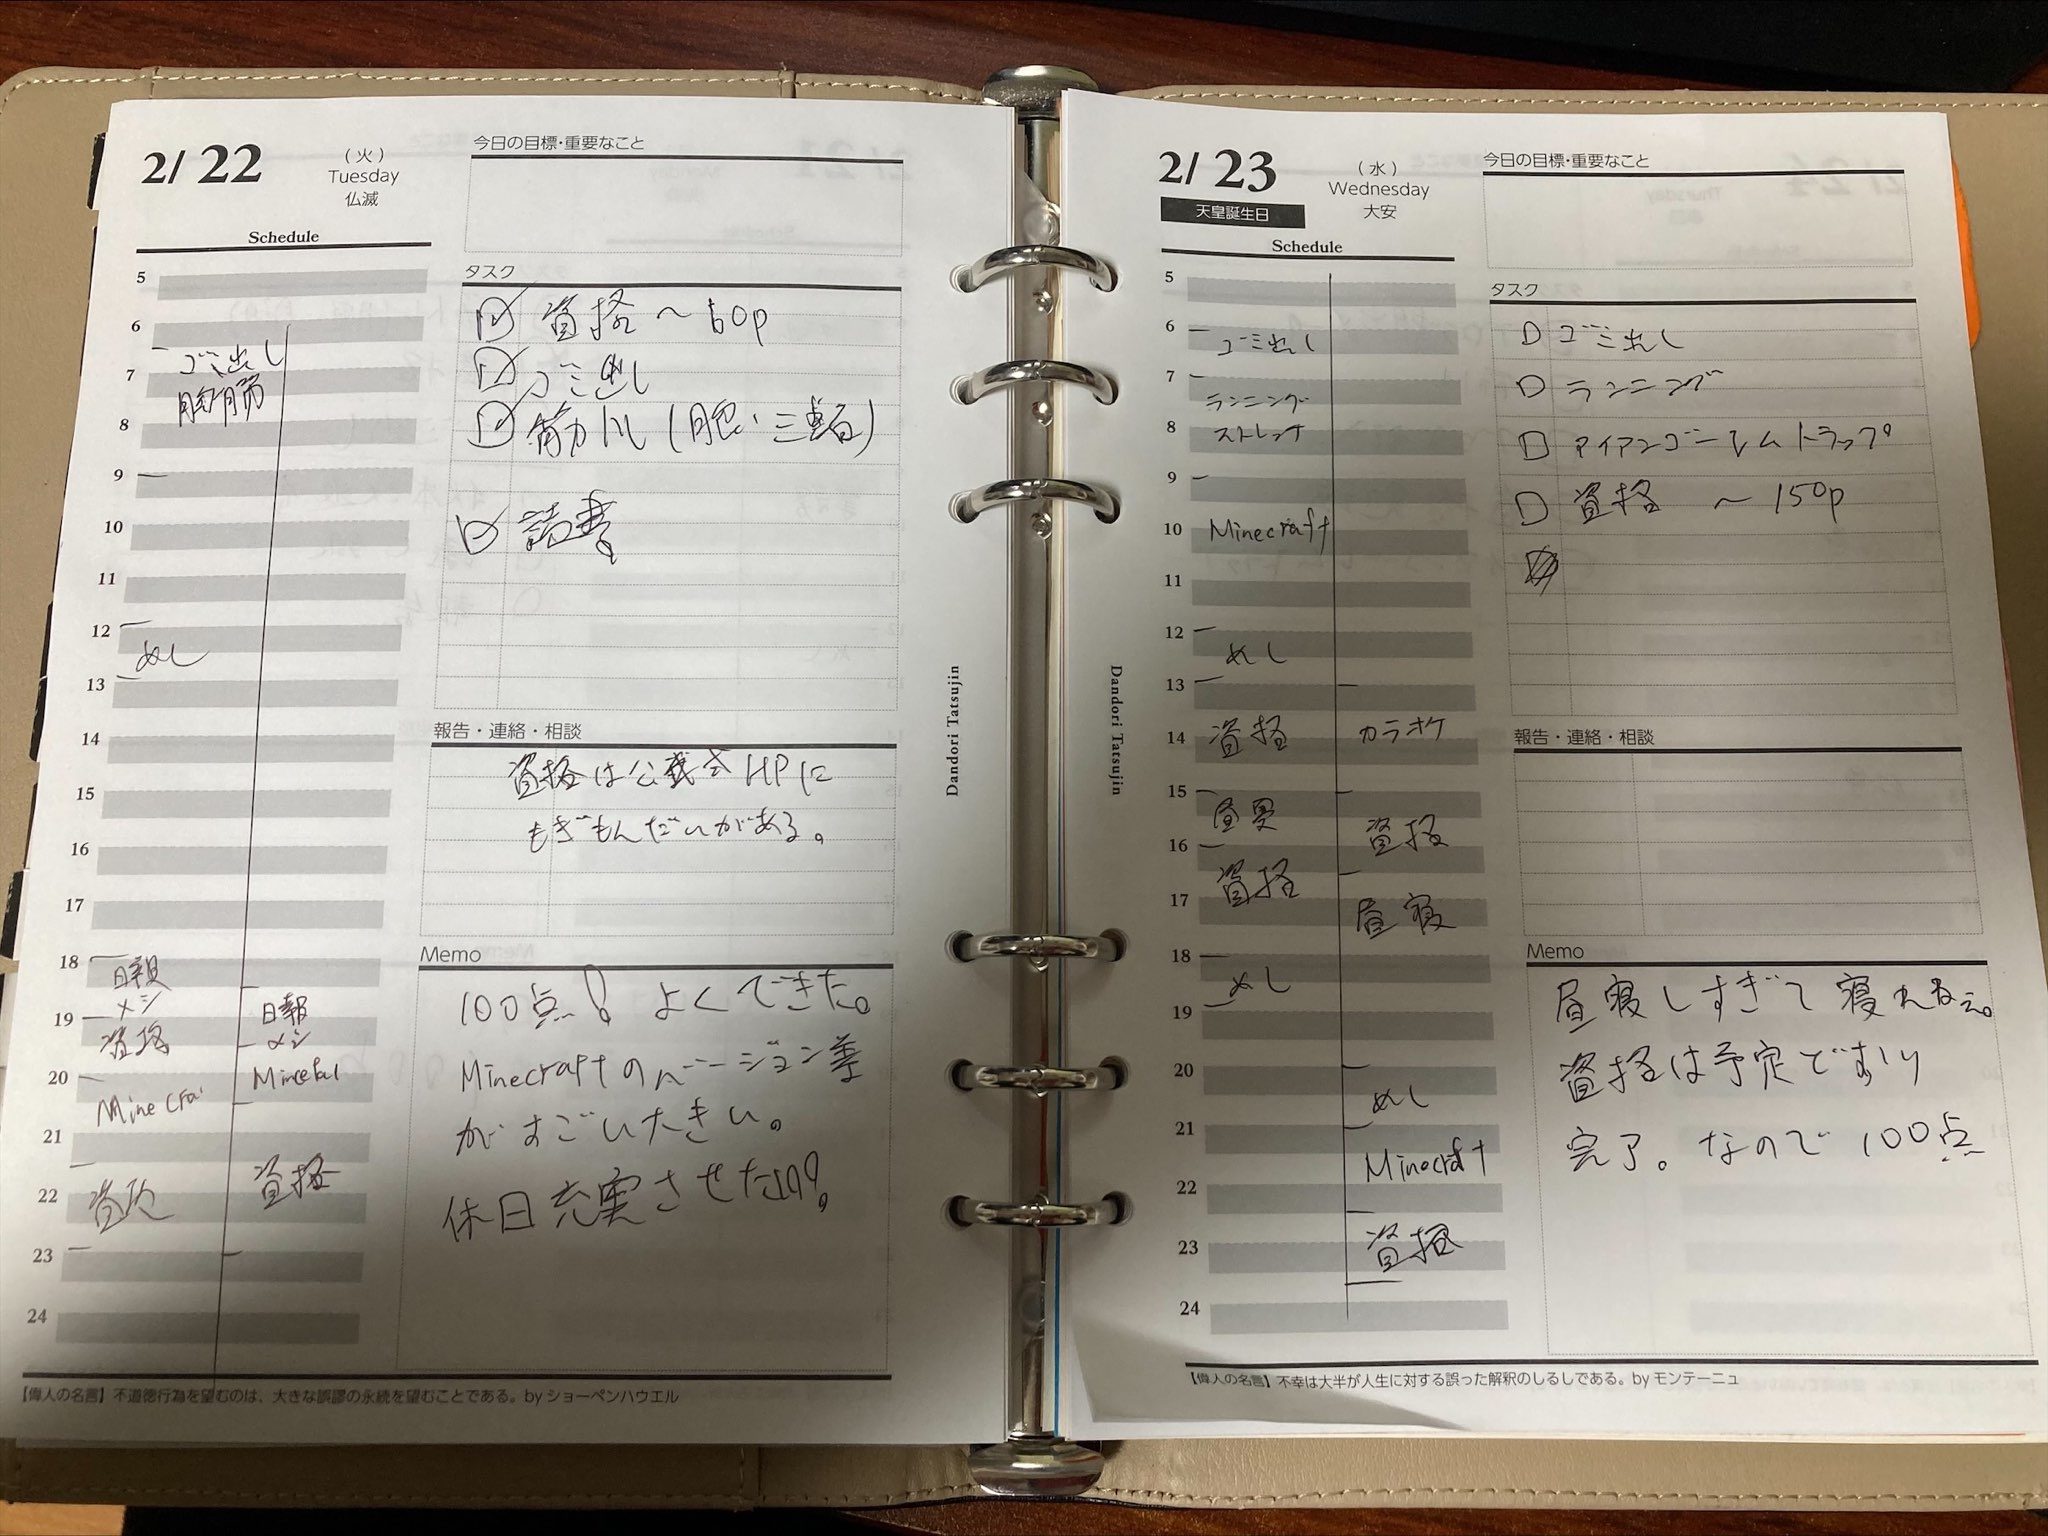 2/ 22
（火）
Tuesday
仏滅
今日の目標・重要なこと
Schedule
5
6
7
8
9
10
11
12
13
14
15
16
17
18
19
20
21
22
23
24
ゴミ出し
胸筋
めし
日報
メシ
資格
Minecra
資格
日報
メシ
資格
タスク
資格 〜60p
ゴミ出し
筋トレ(胸・三頭)
読書
報告・連絡・相談
資格は公式HPに
もぎもんだいがある。
Memo
100点! よくできた。
Minecraftのバージョン差
がすごい大きい。
休日充実させたい!!。
【偉人の名言】不道徳行為を望むのは、大きな誤謬の永続を望むことである。by ショーペンハウエル
Dandori Tatsujin
2/ 23
天皇誕生日
（水）
Wednesday
大安
今日の目標・重要なこと
Schedule
5
6
7
8
9
10
11
12
13
14
15
16
17
18
19
20
21
22
23
24
ゴミ出し
ランニング
ストレッチ
Minecraft
めし
資格
資格
めし
カラオケ
資格
昼寝
めし
Minecraft
資格
タスク
ゴミ出し
ランニング
アイアンゴーレムトラップ
資格 〜150p
報告・連絡・相談
Memo
昼寝しすぎて寝れねぇ。
資格は予定どおり
完了。なので100点
【偉人の名言】不幸は大半が人生に対する誤った解釈のしるしである。by モンテーニュ
Dandori Tatsujin